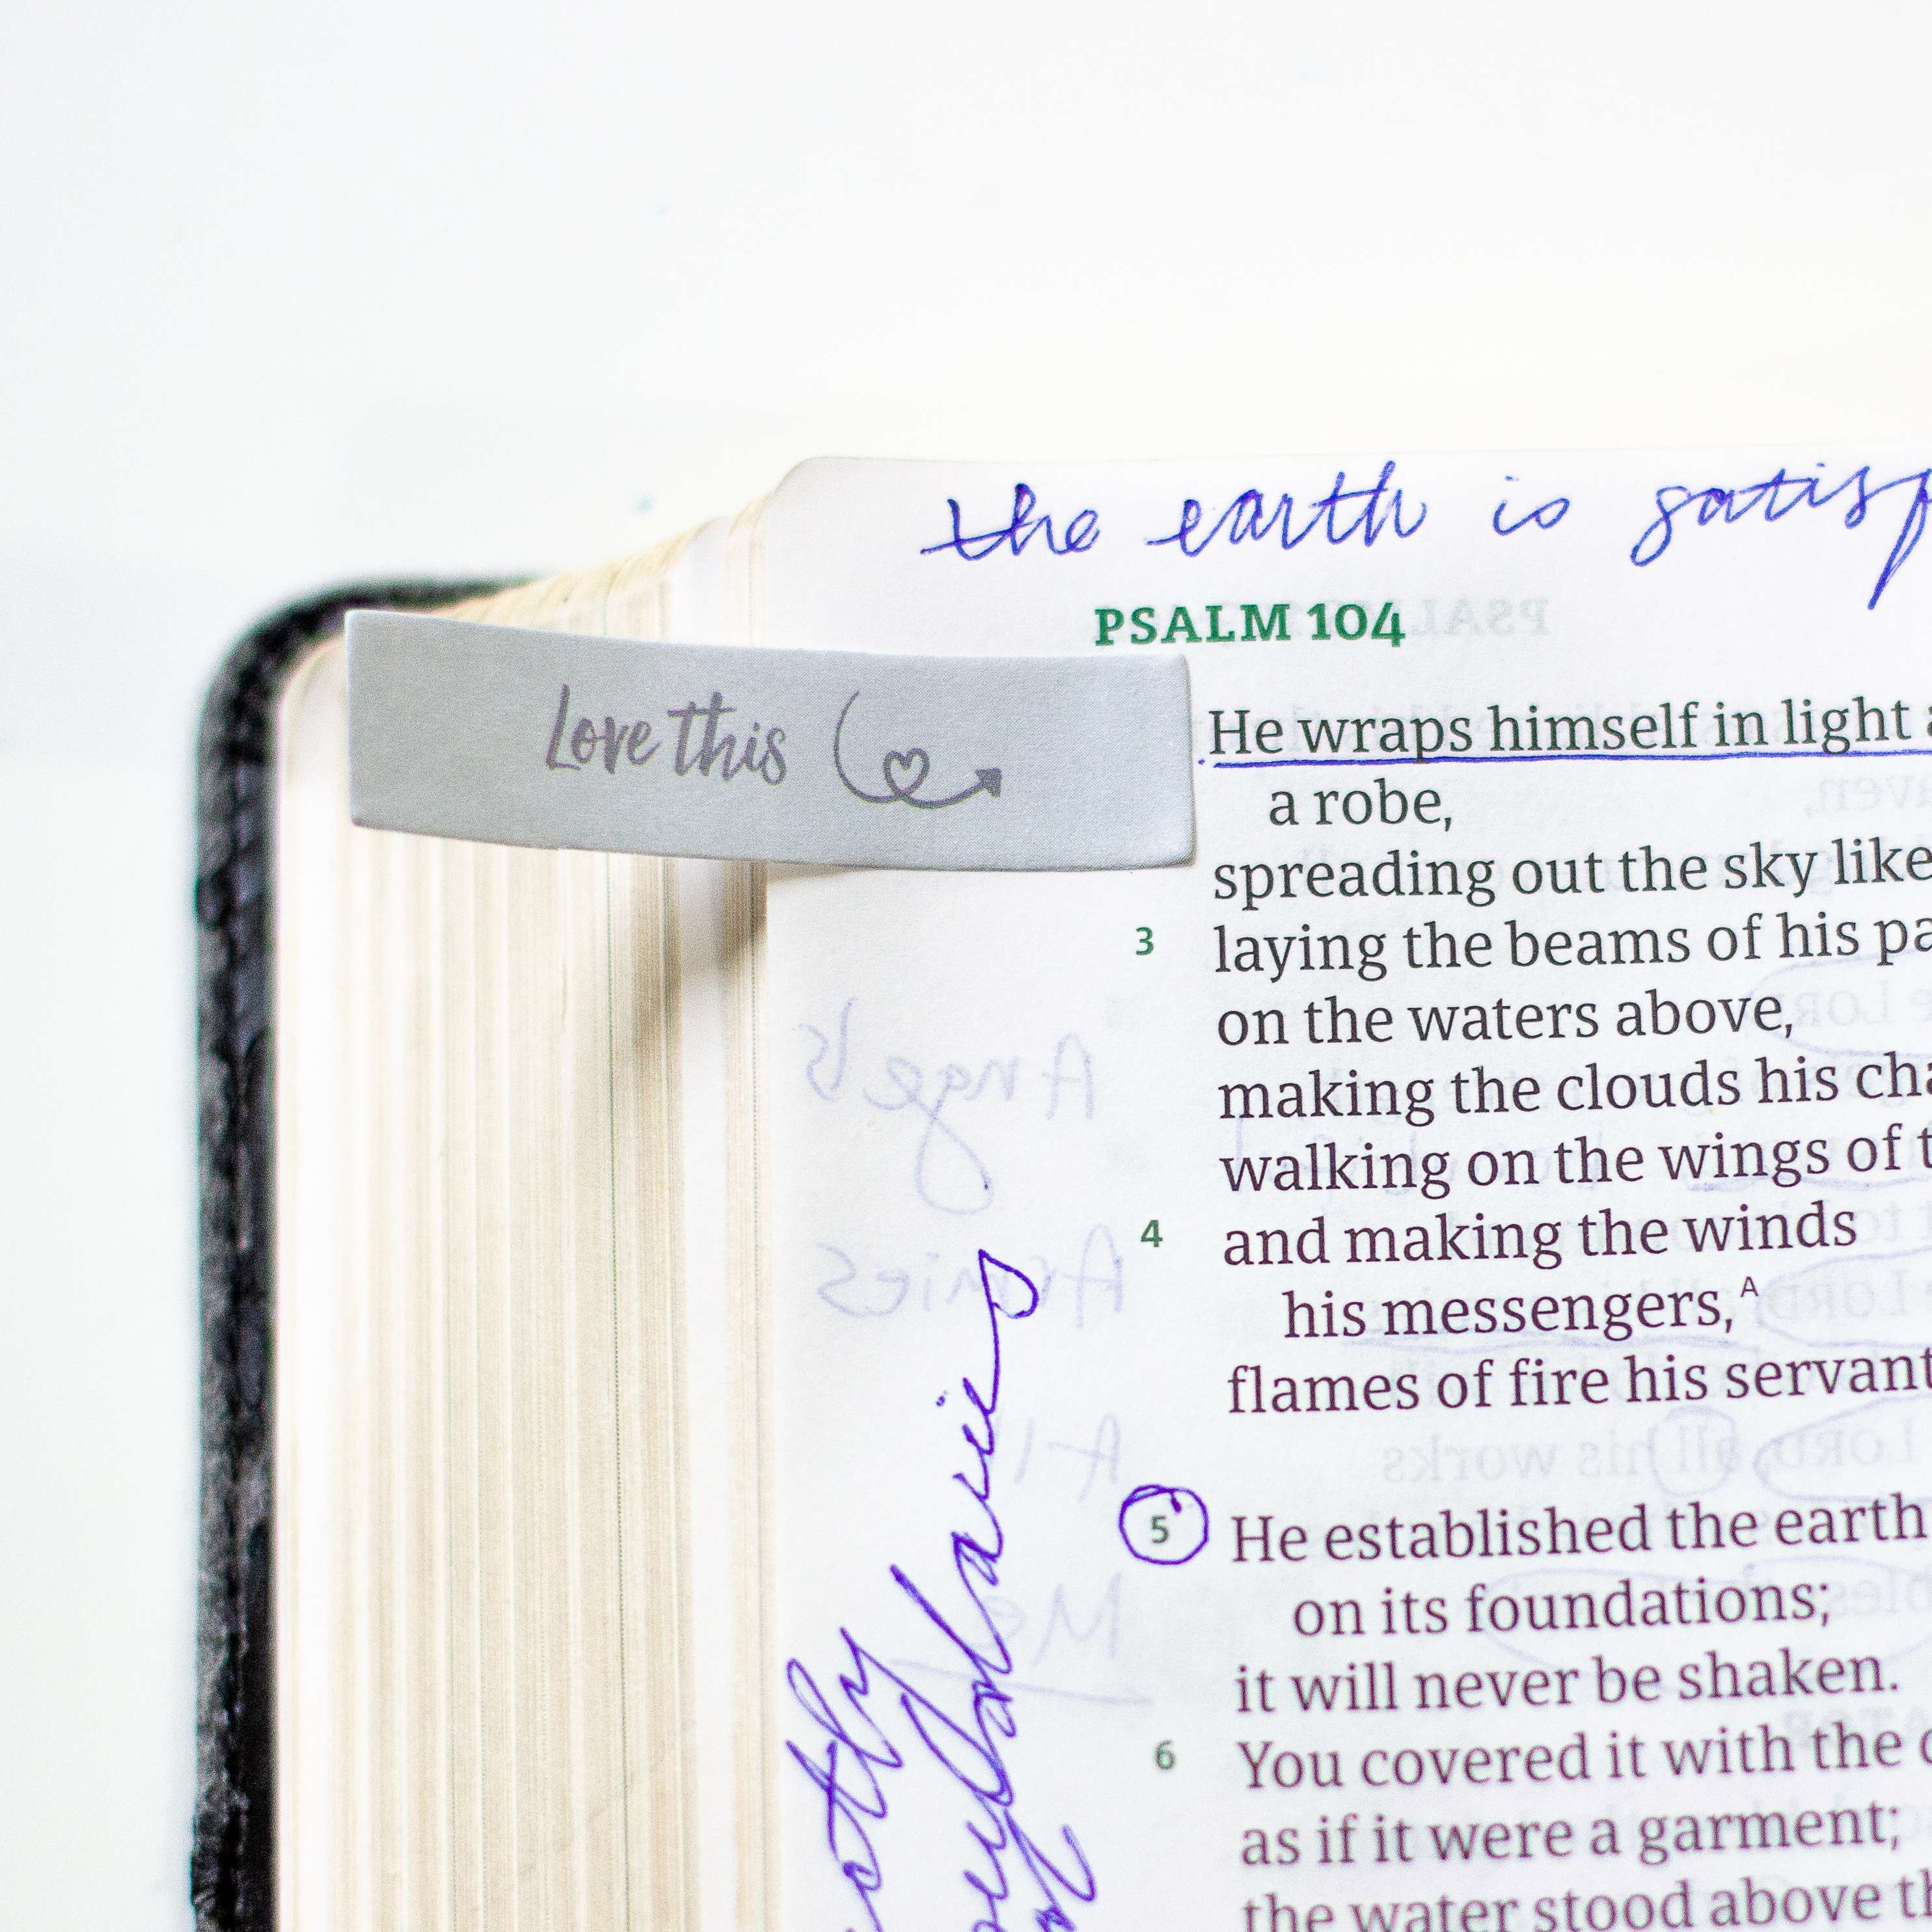 the earth is satisf
PSALM 104
Love this
He wraps himself in light a
a robe,
spreading out the sky like
3 laying the beams of his pa
on the waters above,
making the clouds his cha
walking on the wings of t
4 and making the winds
his messengers,A
flames of fire his servant
5 He established the earth
on its foundations;
it will never be shaken.
6 You covered it with the d
as if it were a garment;
the water stood above th